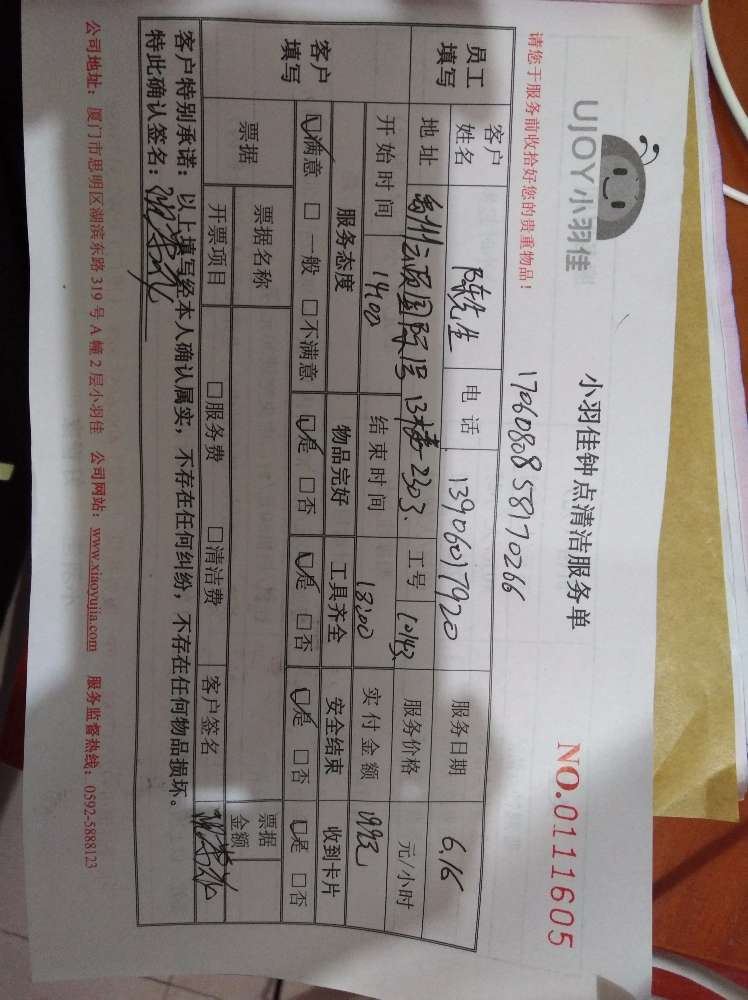 UJOY小羽佳
小羽佳钟点清洁服务单
NO.0111605
请您于服务前收拾好您的贵重物品!
1706080858170266
员工填写
客户姓名 陈先生 电话 13906017920 服务日期 6.16
地址 禹州云顶国际1号13楼2303. 工号 10143 服务价格 元/小时
开始时间 1400 结束时间 18:00 实付金额
客户填写
服务态度 物品完好 工具齐全 安全结束 收到卡片
☑满意 □一般 □不满意 ☑是 □否 ☑是 □否 ☑是 □否 ☑是 □否
票据 票据名称 票据金额
开票项目 □服务费 □清洁费 客户签名
客户特别承诺:以上填写经本人确认属实,不存在任何纠纷,不存在任何物品损坏。
特此确认签名:
公司地址:厦门市思明区湖滨东路319号A幢2层小羽佳 公司网站:www.xiaoyujia.com 服务监督热线:0592-5888123